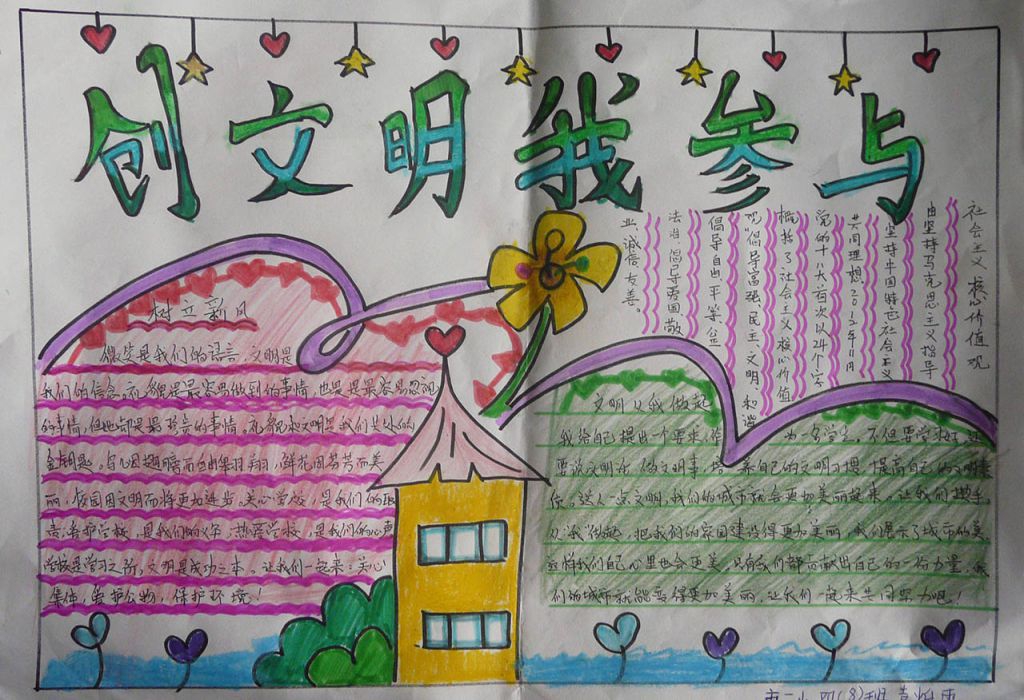 创文明我参与
社会主义核心价值观
由坚持马克思主义指导
坚持中国特色社会主义
共同理想2012年11月
党的十八大首次以24个字
概括了社会主义核心价值
观"倡导富强、民主、文明、和谐
倡导自由、平等、公正
法治、倡导爱国、敬
业、诚信、友善。
树立新风
微笑是我们的语言,文明是
我们的信念。礼貌是最容易做到的事情,也是是最容易忽视
的事情,但也却是最珍贵的事情。礼貌和文明是我们共处的
金钥匙,鸟儿因翅膀而自由翱翔,鲜花因芬芳而美
丽,校园因文明而将更加进步。关心学校,是我们的职
责;爱护学校,是我们的义务,热爱学校,是我们的心声
学校是学习之所,文明是成功之本。让我们一起来:关心
集体,爱护公物,保护环境!
文明从我做起
我给自己提出一个要求,作为一名学生,不但要学习好,还
要说文明话、做文明事,培养自己的文明习惯,提高自己的文明素
质。送人一点文明,我们的城市就会更加美丽起来。让我们携手
从我做起,把我们的家园建设得更加美丽,我们展示了城市的美
这样我们自己心里也会更美,只有我们都贡献出自己的一份力量,我
们的城市就能变得更加美丽,让我们一起来共同努力吧!
市二小四(8)班